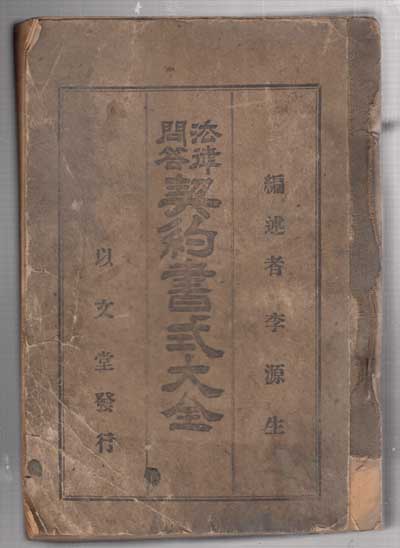 編述者 李源生
法律問答 契約書式大全
以文堂發行